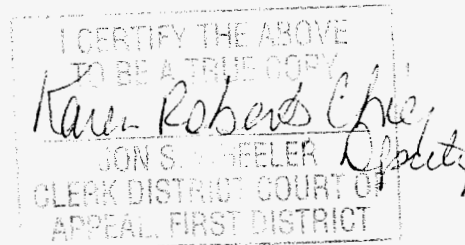 I CERTIFY THE ABOVE
TO BE A TRUE COPY
Karen Roberts Chief
Deputy
JON S. WHEELER
CLERK DISTRICT COURT OF
APPEAL, FIRST DISTRICT